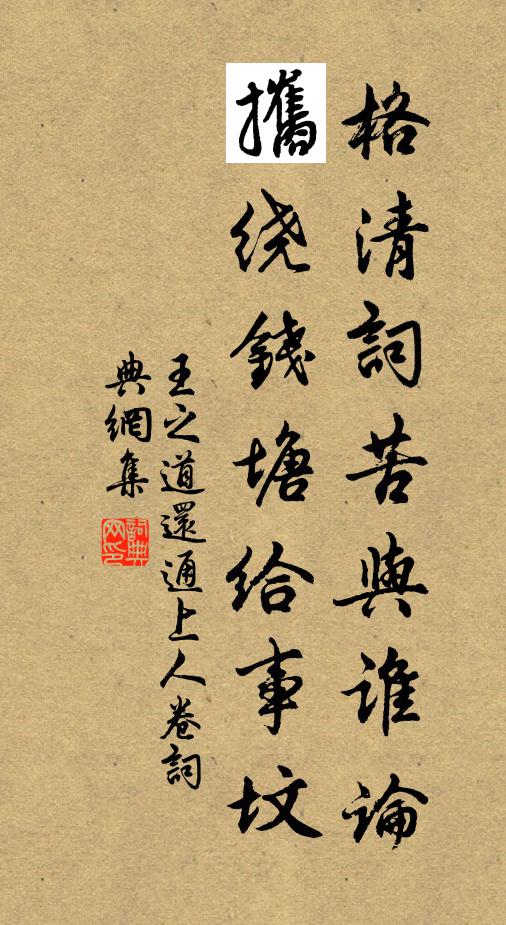 格清詞苦與誰論
攜绕錢塘给事坟
王之道還通上人卷詞
典網集
詞典網印